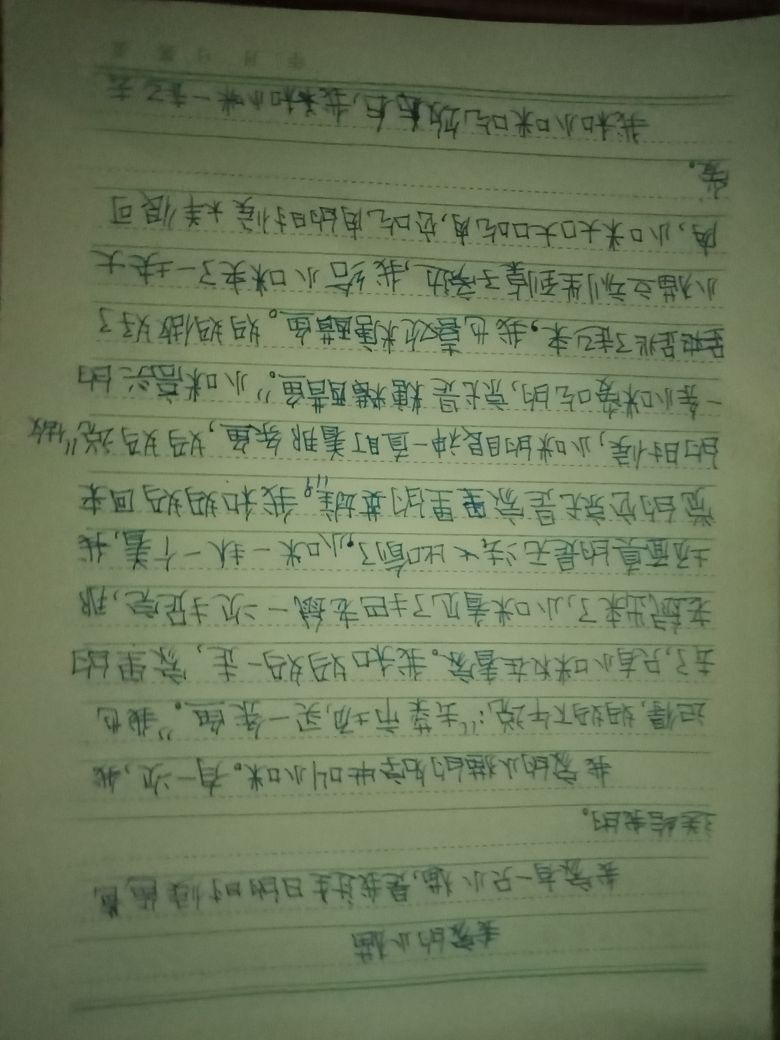 我家的小猫
我家有一只小猫,是我过生日的时候爸爸
送给我的。
我家的小猫的名字叫小咪。有一次,我
记得,妈妈下午说:“去菜市场,买一条鱼。”我也
去了,只有小咪权在看家。我和妈妈一走,家里的
老鼠出来了,小咪看见了把老鼠一次捉完,那
场面真的是无法比喻了。小咪一扒一个着,我
觉的它就是家里的英雄。”我和妈妈回来
的时候,小咪的眼神一直盯着那条鱼,妈妈说“做
一条小咪爱吃的,就是糖醋鱼”。小咪高兴的
跳了起来,我也喜欢糖醋鱼。妈妈做好了
小猫立刻坐到桌子旁边,我给小咪夹了一块大
肉,小咪大口大口吃肉,它吃肉的时候样子很可
爱。
我和小咪吃饭后,我和小咪一起去
年 月 日 星期